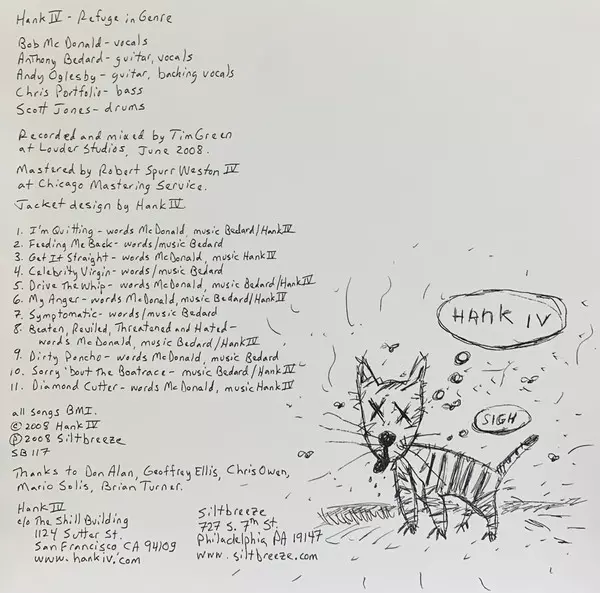 Hank IV - Refuge in Genre
Bob McDonald - vocals
Anthony Bedard - guitar, vocals
Andy Oglesby - guitar, backing vocals
Chris Portfolio - bass
Scott Jones - drums
Recorded and mixed by Tim Green
at Louder Studios, June 2008.
Mastered by Robert Spurr Weston IV
at Chicago Mastering Service.
Jacket design by Hank IV.
1. I'm Quitting - words McDonald, music Bedard/Hank IV
2. Feeding Me Back - words/music Bedard
3. Get It Straight - words McDonald, music Hank IV
4. Celebrity Virgin - words/music Bedard
5. Drive The Whip - words McDonald, music Bedard/Hank IV
6. My Anger - words McDonald, music Bedard/Hank IV
7. Symptomatic - words/music Bedard
8. Beaten, Reviled, Threatened and Hated -
words McDonald, music Bedard/Hank IV
9. Dirty Poncho - words McDonald, music Bedard
10. Sorry 'bout the Boatrace - music Bedard/Hank IV
11. Diamond Cutter - words McDonald, music Hank IV
all songs BMI.
© 2008 Hank IV
℗ 2008 Siltbreeze
SB 117
Thanks to Don Alan, Geoffrey Ellis, Chris Owen,
Mario Solis, Brian Turner.
Hank IV
c/o The Shill Building
1124 Sutter St.
San Francisco CA 94109
www.hankiv.com
Siltbreeze
727 S. 7th St.
Philadelphia, PA 19147
www.siltbreeze.com
HANK IV
SIGH